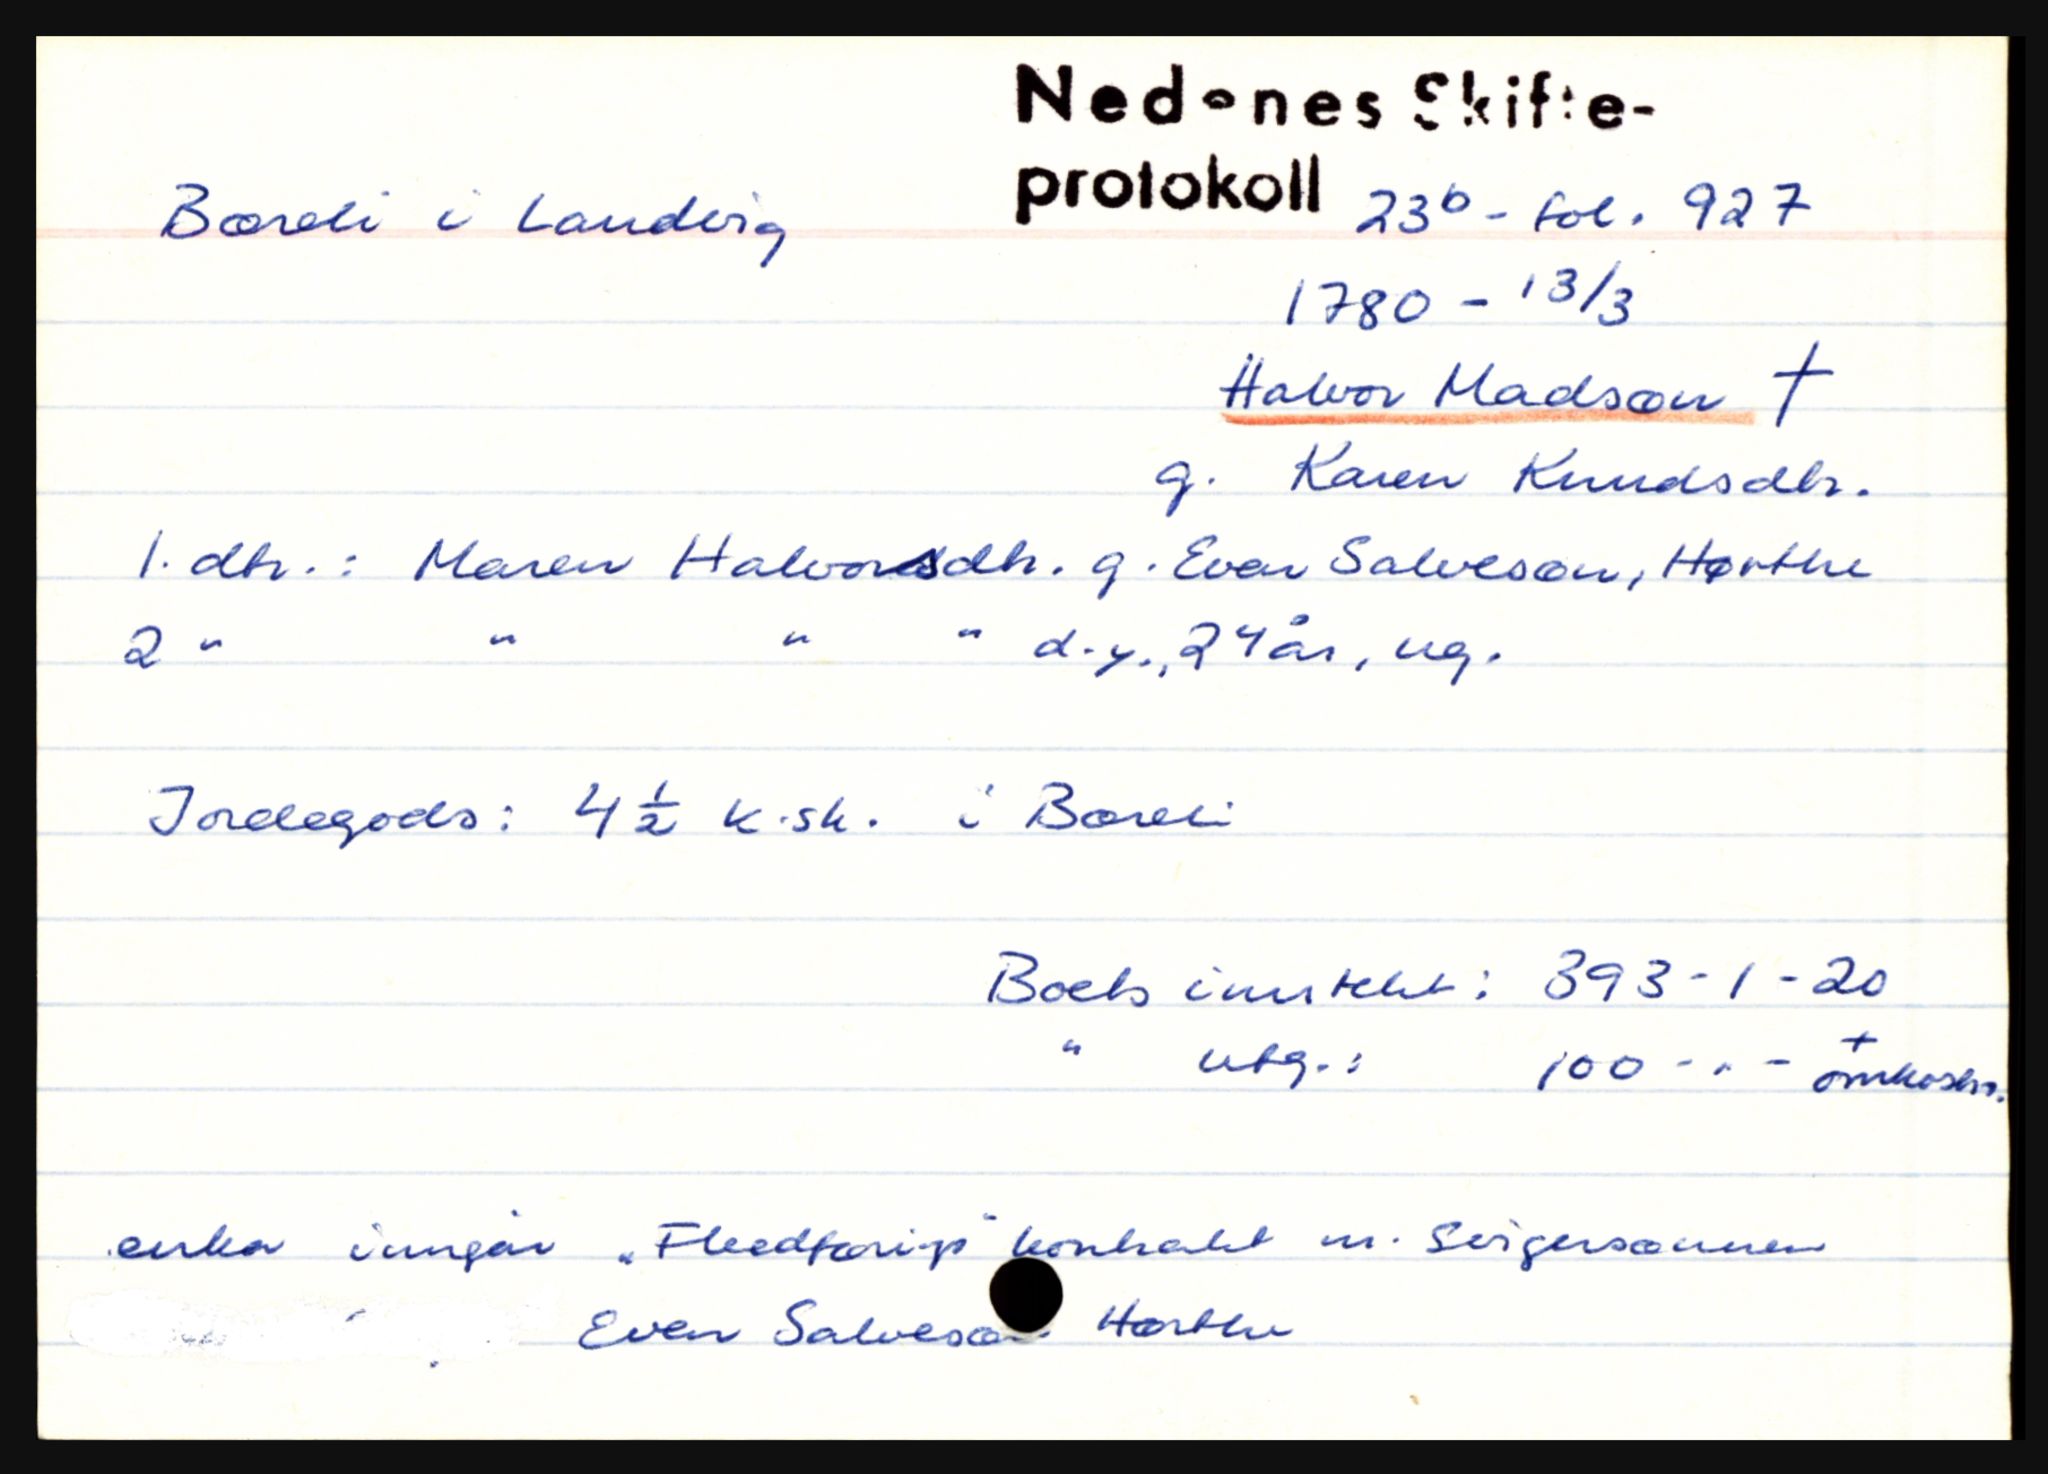 Nedenes Skifte-
protokoll 23b - fol. 927
Børeli i Landvig
1780 - 13/3
Halvor Madsøn †
g. Karen Knudsdtr.
1. dtr.: Maren Halvorsdtr. g. Even Salvesøn, Hørthe
2 " " " " d.y., 24 år, ug.
Jordegods: 4 1/2 k.sk. i Børeli
Boets inntekt: 393-1-20
" utg.: 100 - " - + omkostn.
enka inngår „Fledføring" kontrakt m. svigersønnen
Even Salvesøn Hørthe